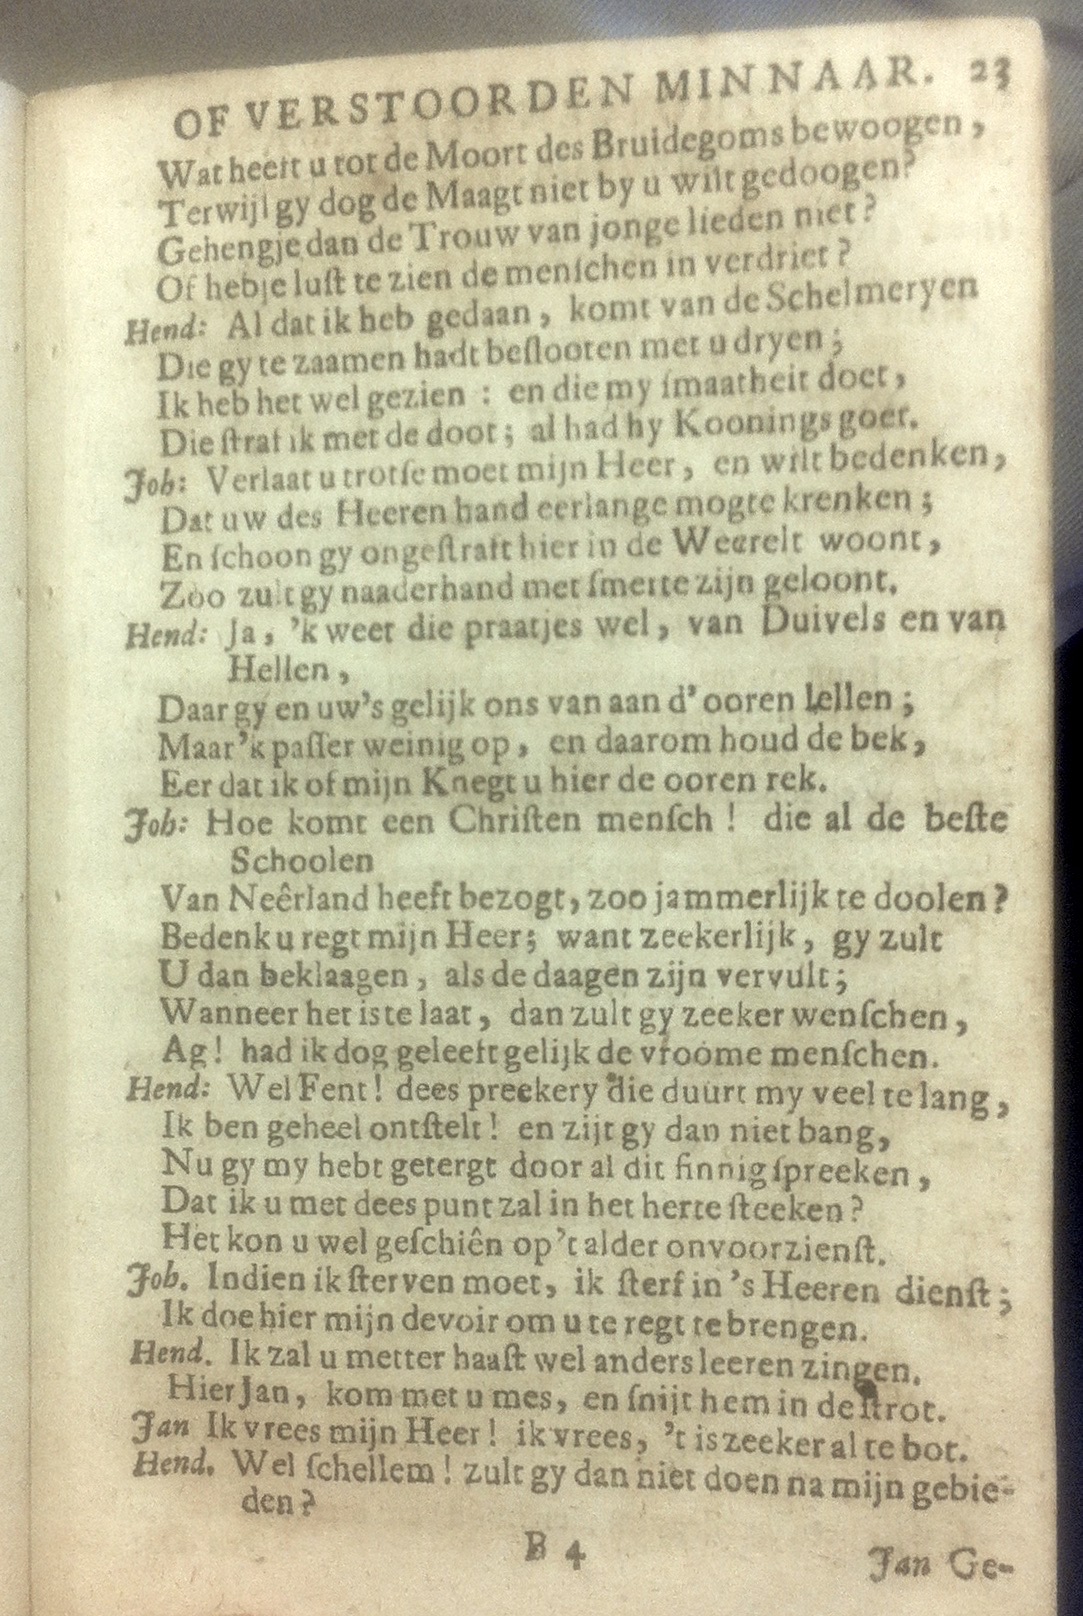 OF VERSTOORDEN MINNAAR. 23
Wat heeft u tot de Moort des Bruidegoms bewoogen,
Terwijl gy dog de Maagt niet by u wilt gedoogen?
Gehengje dan de Trouw van jonge lieden niet?
Of hebje luſt te zien de menſchen in verdriet?
Hend: Al dat ik heb gedaan, komt van de Schelmeryen
Die gy te zaamen hadt beſlooten met u dryen;
Ik heb het wel gezien: en die my ſmaatheit doet,
Die ſtraf ik met de doot; al had hy Koonings goet.
Job: Verlaat u trotſe moet mijn Heer, en wilt bedenken,
Dat uw des Heeren hand eerlange mogte krenken;
En ſchoon gy ongeſtraft hier in de Weerelt woont,
Zoo zult gy naaderhand met ſmerte zijn geloont.
Hend: Ja, 'k weet die praatjes wel, van Duivels en van
Hellen,
Daar gy en uw's gelijk ons van aan d'ooren lellen;
Maar 'k paſſer weinig op, en daarom houd de bek,
Eer dat ik of mijn Knegt u hier de ooren rek.
Job: Hoe komt een Chriſten menſch! die al de beſte
Schoolen
Van Neêrland heeft bezogt, zoo jammerlijk te doolen?
Bedenk u regt mijn Heer; want zeekerlijk, gy zult
U dan beklaagen, als de daagen zijn vervult;
Wanneer het is te laat, dan zult gy zeeker wenſchen,
Ag! had ik dog geleeft gelijk de vroome menſchen.
Hend: Wel Fent! dees preekery die duurt my veel te lang,
Ik ben geheel ontſtelt! en zijt gy dan niet bang,
Nu gy my hebt getergt door al dit finnig ſpreeken,
Dat ik u met dees punt zal in het herte ſteeken?
Het kon u wel geſchiên op 't alder onvoorzienſt.
Job. Indien ik ſterven moet, ik ſterf in 's Heeren dienſt;
Ik doe hier mijn devoir om u te regt te brengen.
Hend. Ik zal u metter haaſt wel anders leeren zingen.
Hier Jan, kom met u mes, en ſnijt hem in de ſtrot.
Jan Ik vrees mijn Heer! ik vrees, 't is zeeker al te bot.
Hend. Wel ſchellem! zult gy dan niet doen na mijn gebie-
den?
B 4
Jan Ge-